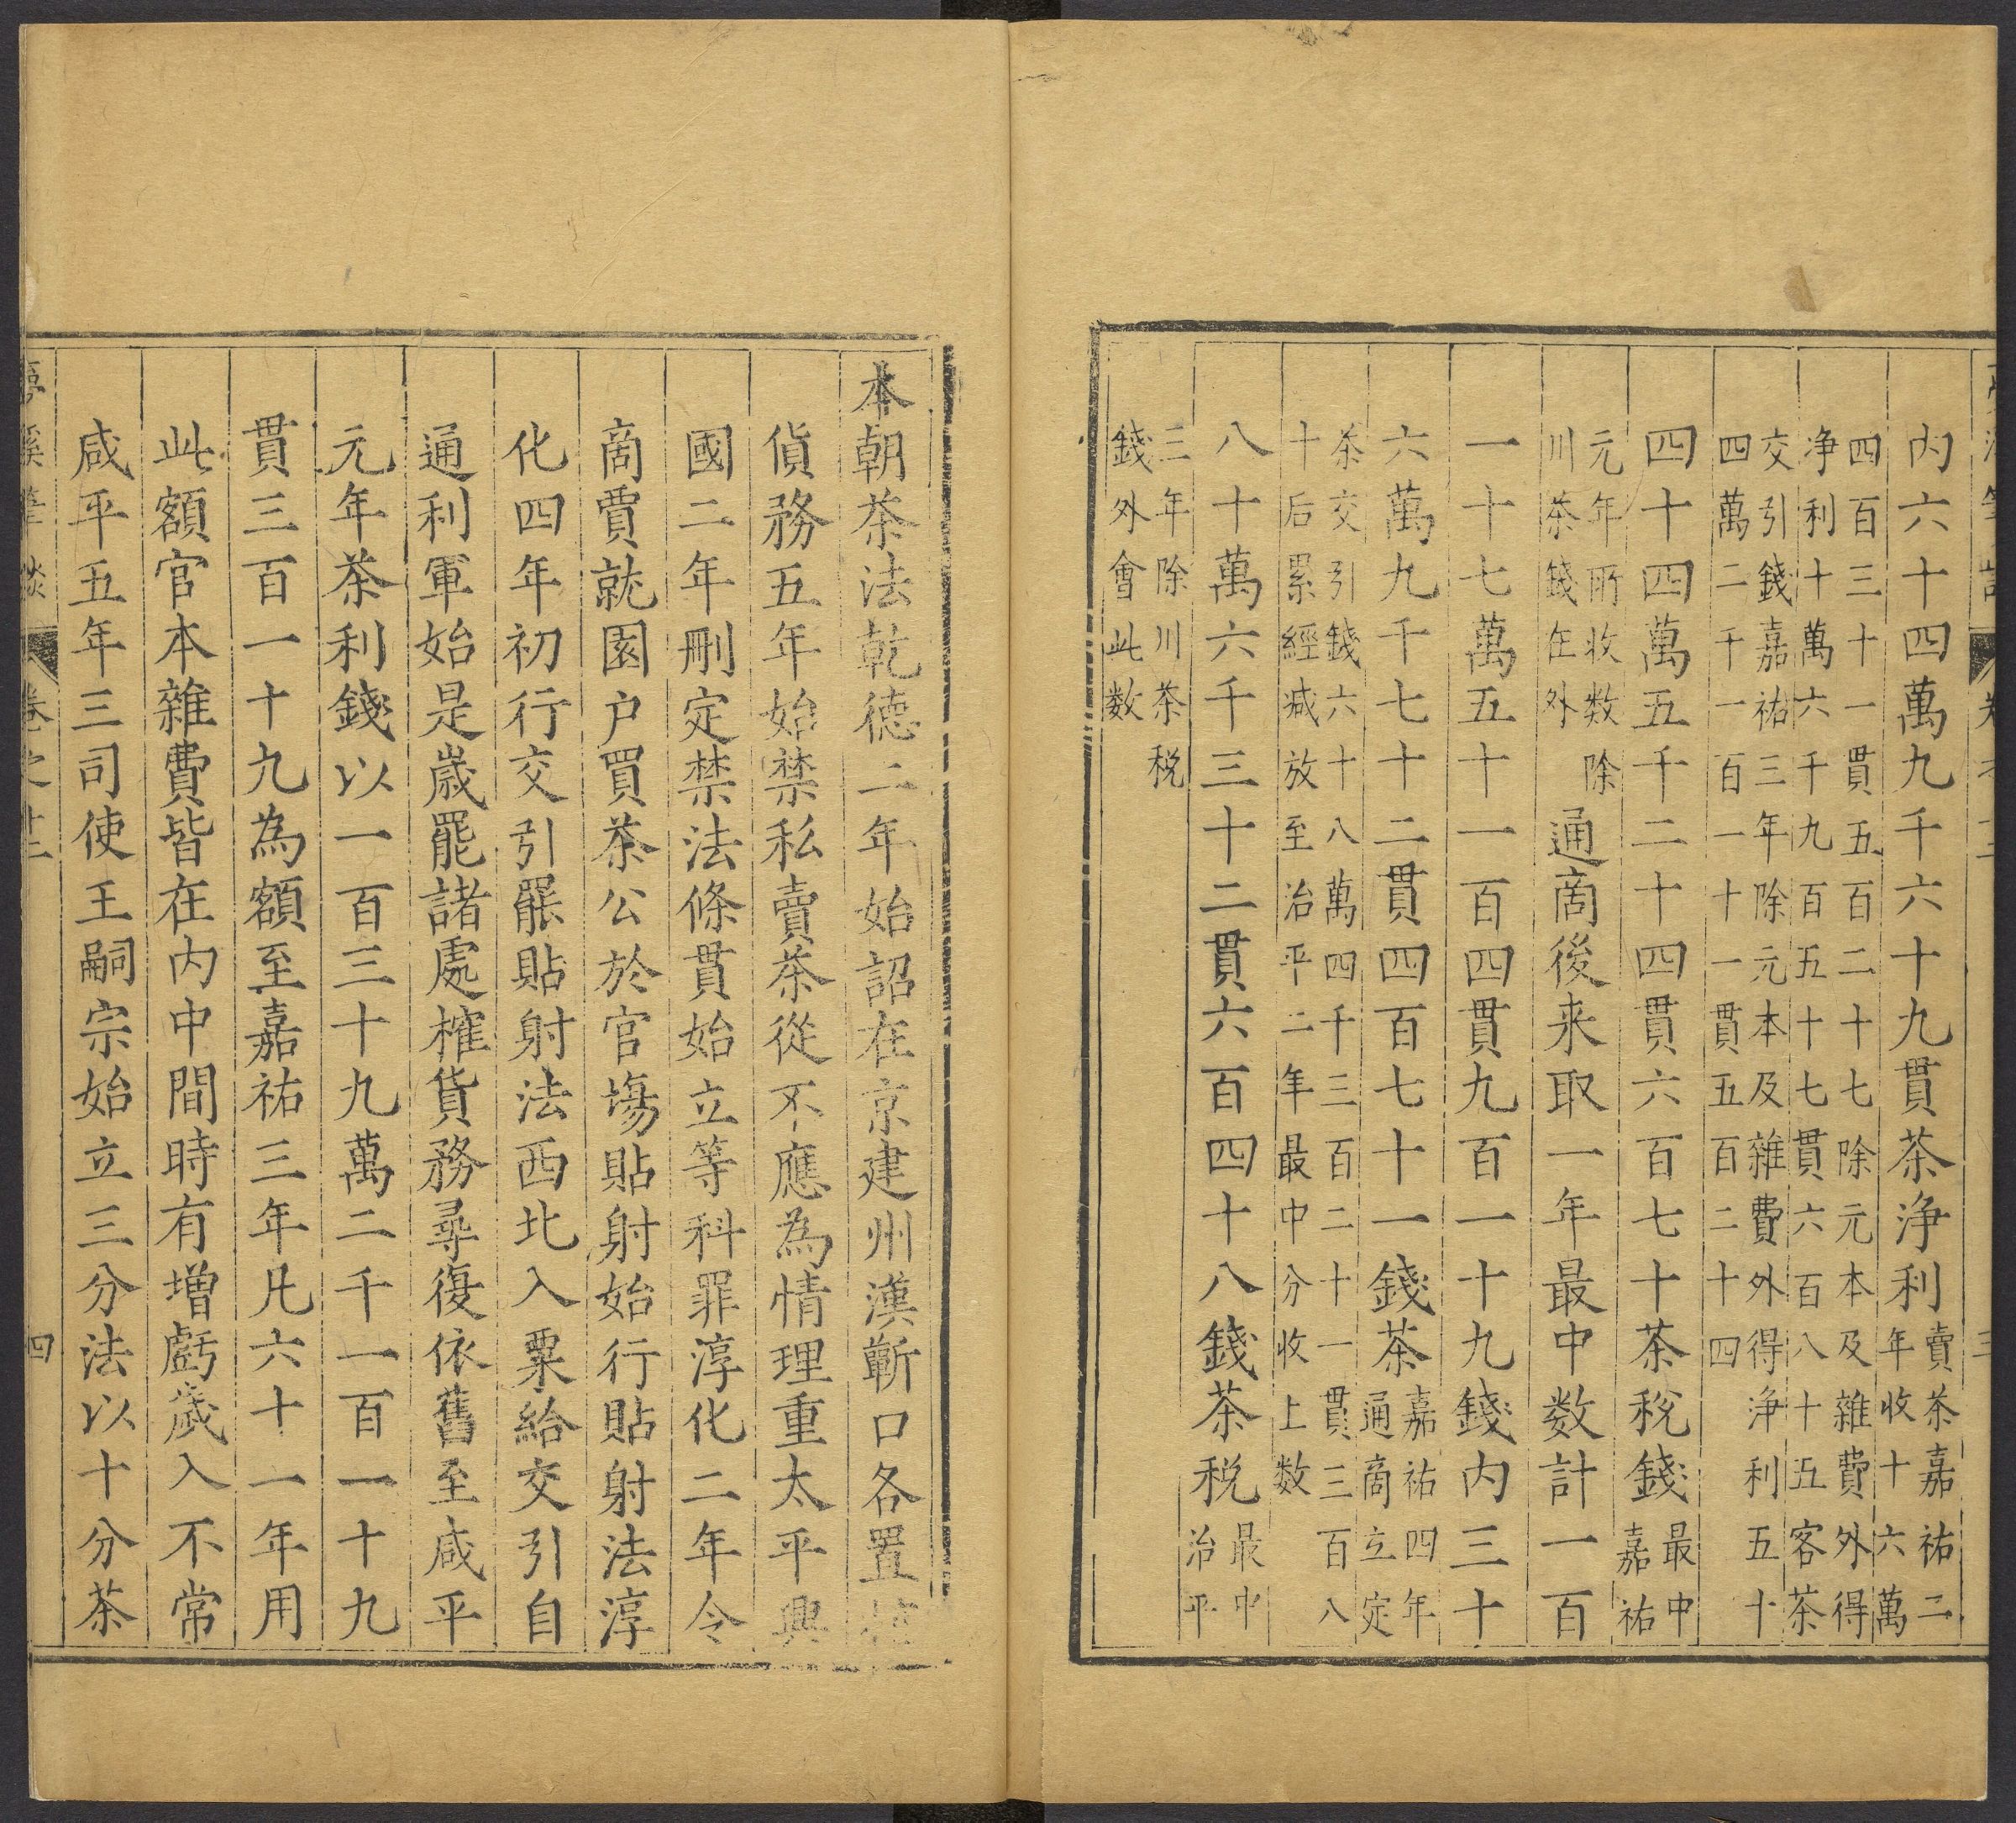 内六十四萬九千六十九貫茶浄利賣茶嘉祐二
年收十六萬
四百三十一貫五百二十七除元本及雜費外得
浄利十萬六千九百五十七貫六百八十五客茶
交引錢嘉祐三年除元本及雜費外得浄利五十
四萬二千一百一十一貫五百二十四
四十四萬五千二十四貫六百七十茶税錢最中
嘉祐
元年所收数除
川茶錢在外通商後来取一年最中数計一百
一十七萬五十一百四貫九百一十九錢内三十
六萬九千七十二貫四百七十一錢茶嘉祐四年
通商立定
茶交引錢六十八萬四千三百二十一貫三百八
十后累經减放至治平二年最中分收上数
八十萬六千三十二貫六百四十八錢茶税最中
治平
三年除川茶税
錢外會此数
本朝茶法乾德二年始詔在京建州漢蘄口各置榷
貨務五年始禁私賣茶從不應為情理重太平興
國二年刪定禁法條貫始立等科罪淳化二年令
商賈就園户買茶公於官塲貼射始行貼射法淳
化四年初行交引罷貼射法西北入粟給交引自
通利軍始是歲罷諸處榷貨務尋復依舊至咸平
元年茶利錢以一百三十九萬二千一百一十九
貫三百一十九為額至嘉祐三年凡六十一年用
此額官本雜費皆在内中間時有增虧歲入不常
咸平五年三司使王嗣宗始立三分法以十分茶
夢溪筆談 卷之十二 四